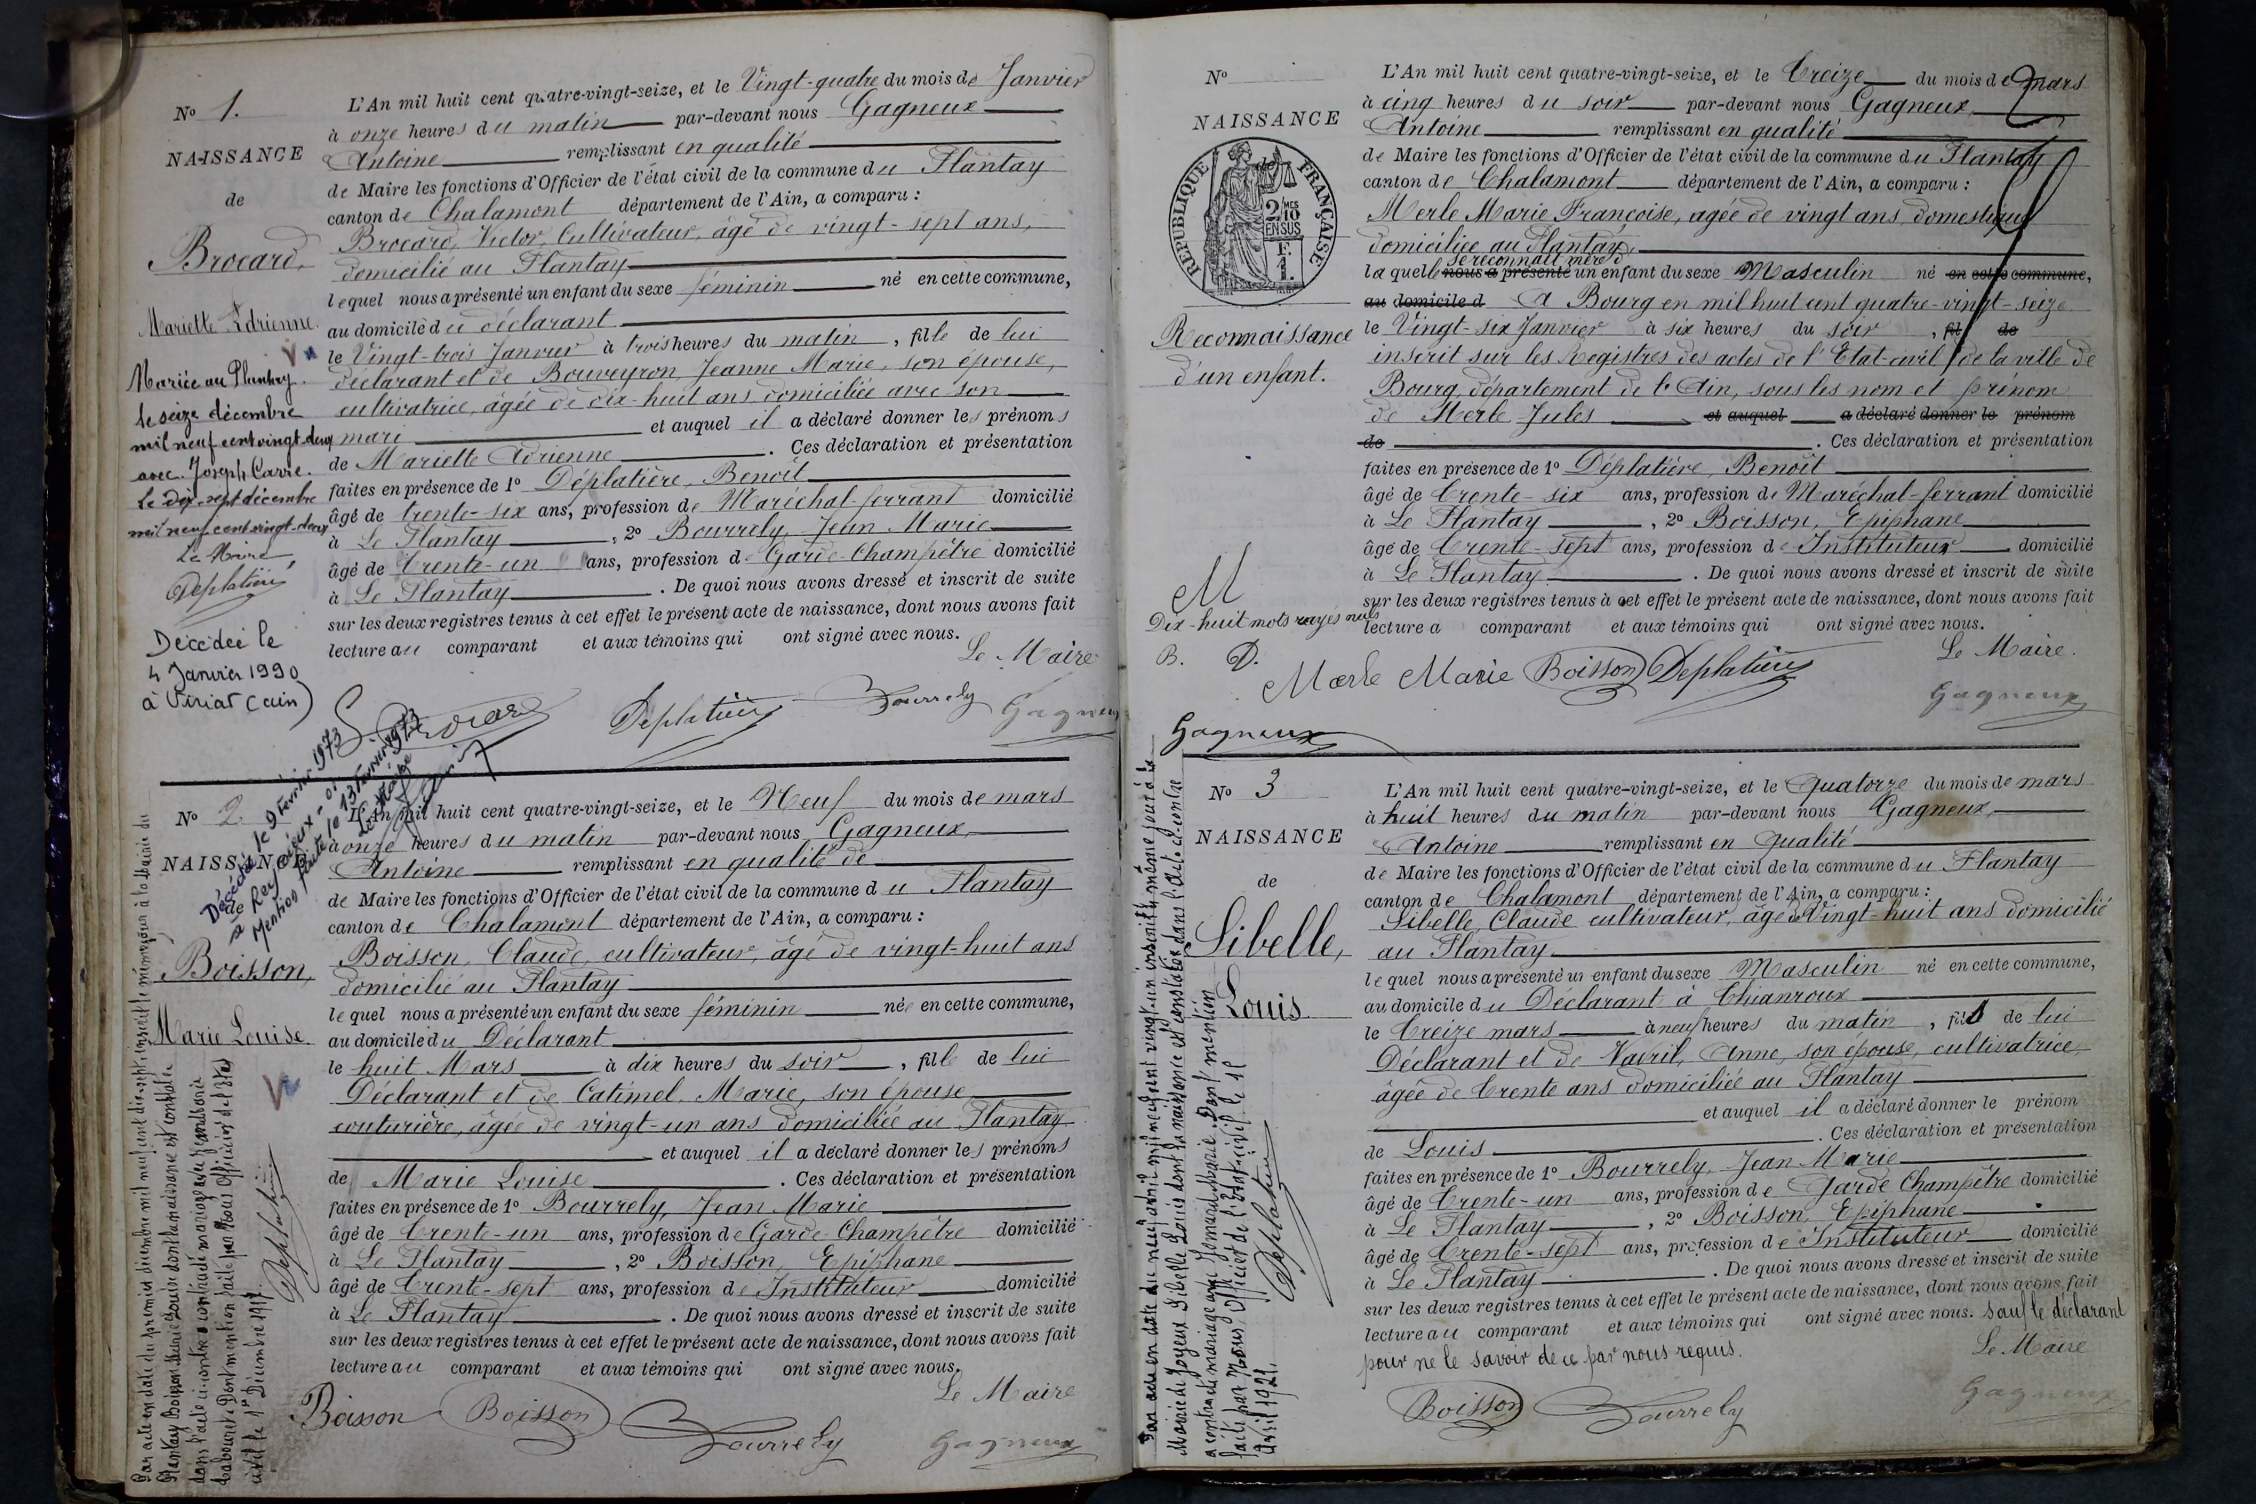 No 1.
NAISSANCE
de
Brocard,
Mariette Adrienne.
Mariée au Plantay.
le seize décembre
mil neuf cent vingt-deux
avec Joseph Carre.
Le dix-sept décembre
mil neuf cent vingt-deux
Le Maire
Deplatière
Décédée le
4 Janvier 1990
à Viriat (ain)
L'An mil huit cent quatre-vingt-seize, et le Vingt-quatre du mois de Janvier
à onze heures du matin par-devant nous Gagneux
Antoine remplissant en qualité
de Maire les fonctions d'Officier de l'état civil de la commune du Plantay
canton de Chalamont département de l'Ain, a comparu :
Brocard, Victor, Cultivateur, âgé de vingt-sept ans,
domicilié au Plantay
lequel nous a présenté un enfant du sexe féminin né en cette commune,
au domicile du déclarant
le Vingt-trois Janvier à trois heures du matin, fille de lui
déclarant et de Bouveyron, Jeanne Marie, son épouse,
cultivatrice, âgée de dix-huit ans domiciliée avec son
mari et auquel il a déclaré donner les prénoms
de Mariette Adrienne. Ces déclaration et présentation
faites en présence de 1º Déplatière, Benoît
âgé de trente-six ans, profession de Maréchal-ferrant domicilié
à Le Plantay, 2º Bourrely, Jean Marie
âgé de trente-un ans, profession de Garde-Champêtre domicilié
à Le Plantay. De quoi nous avons dressé et inscrit de suite
sur les deux registres tenus à cet effet le présent acte de naissance, dont nous avons fait
lecture au comparant et aux témoins qui ont signé avec nous.
Le Maire
Brocard Deplatière Bourrely Gagneux
No 2.
NAISSANCE
de
Boisson,
Marie Louise.
Décédée le 9 février 1973
à Reyrieux - 01
Mention faite le 13 février 1973
Le Maire
Par acte en date du premier décembre mil neuf cent dix-sept inscrit le même jour à la Mairie du
Plantay Boisson Marie Louise dont la naissance est constatée
dans l'acte ci-contre a contracté mariage avec
Dont mention faite par Nous Officier de l'Etat
civil le 1er Décembre 1917.
Deplatière
L'An mil huit cent quatre-vingt-seize, et le Neuf du mois de mars
à onze heures du matin par-devant nous Gagneux,
Antoine remplissant en qualité de
de Maire les fonctions d'Officier de l'état civil de la commune du Plantay
canton de Chalamont département de l'Ain, a comparu :
Boisson, Claude, cultivateur, âgé de vingt-huit ans
domicilié au Plantay
lequel nous a présenté un enfant du sexe féminin née en cette commune,
au domicile du Déclarant
le huit Mars à dix heures du soir, fille de lui
Déclarant et de Catimel, Marie, son épouse
couturière, âgée de vingt-un ans domiciliée au Plantay
et auquel il a déclaré donner les prénoms
de Marie Louise. Ces déclaration et présentation
faites en présence de 1º Bourrely, Jean Marie
âgé de trente-un ans, profession de Garde-Champêtre domicilié
à Le Plantay, 2º Boisson, Epiphane
âgé de trente-sept ans, profession de Instituteur domicilié
à Le Plantay. De quoi nous avons dressé et inscrit de suite
sur les deux registres tenus à cet effet le présent acte de naissance, dont nous avons fait
lecture au comparant et aux témoins qui ont signé avec nous.
Le Maire
Boisson Boisson Bourrely Gagneux
No
NAISSANCE
de
RÉPUBLIQUE FRANÇAISE
2/10 MES
EN SUS
F.
1.
Reconnaissance
d'un enfant.
Dix-huit mots rayés nuls
B. D.
M
L'An mil huit cent quatre-vingt-seize, et le treize du mois de mars
à cinq heures du soir par-devant nous Gagneux,
Antoine remplissant en qualité
de Maire les fonctions d'Officier de l'état civil de la commune du Plantay
canton de Chalamont département de l'Ain, a comparu :
Merle Marie Françoise, agée de vingt ans, domestique
domiciliée au Plantay,
se reconnait mère d
laquelle nous a présenté un enfant du sexe Masculin né en cette commune,
au domicile d A Bourg en mil huit cent quatre-vingt-seize
le Vingt-six Janvier à six heures du soir, fil de
inscrit sur les Registres des actes de l'Etat-civil de la ville de
Bourg, département de l'Ain, sous les nom et prénom
de Merle Jules et auquel a déclaré donner le prénom
de. Ces déclaration et présentation
faites en présence de 1º Déplatière, Benoît
âgé de trente-six ans, profession de Maréchal-ferrant domicilié
à Le Plantay, 2º Boisson, Epiphane
âgé de trente-sept ans, profession de Instituteur domicilié
à Le Plantay. De quoi nous avons dressé et inscrit de suite
sur les deux registres tenus à cet effet le présent acte de naissance, dont nous avons fait
lecture a comparant et aux témoins qui ont signé avec nous.
Le Maire.
Merle Marie Boisson Deplatière
Gagneux
Gagneux
No 3
NAISSANCE
de
Sibelle,
Louis.
Par acte en date du neuf avril mil neuf cent vingt-un inscrit le même jour à la
Mairie de Joyeux Sibelle Louis dont la naissance est constatée dans l'acte ci-contre
a contracté mariage avec Marie. Dont mention
faite par Nous, Officier de l'Etat-civil le 18
Avril 1921.
Deplatière
L'An mil huit cent quatre-vingt-seize, et le Quatorze du mois de mars
à huit heures du matin par-devant nous Gagneux,
Antoine remplissant en qualité
de Maire les fonctions d'Officier de l'état civil de la commune du Plantay
canton de Chalamont département de l'Ain, a comparu :
Sibelle, Claude cultivateur, âgé de Vingt-huit ans domicilié
au Plantay
lequel nous a présenté un enfant du sexe Masculin né en cette commune,
au domicile du Déclarant à Chianroux
le treize mars à neuf heures du matin, fils de lui
Déclarant et de Navril, Anne, son épouse, cultivatrice,
âgée de trente ans domiciliée au Plantay
et auquel il a déclaré donner le prénom
de Louis. Ces déclaration et présentation
faites en présence de 1º Bourrely, Jean Marie
âgé de trente-un ans, profession de Garde Champêtre domicilié
à Le Plantay, 2º Boisson, Epiphane
âgé de trente-sept ans, profession de Instituteur domicilié
à Le Plantay. De quoi nous avons dressé et inscrit de suite
sur les deux registres tenus à cet effet le présent acte de naissance, dont nous avons fait
lecture au comparant et aux témoins qui ont signé avec nous. sauf le déclarant
pour ne le savoir de ce par nous requis.
Le Maire
Boisson Bourrely Gagneux